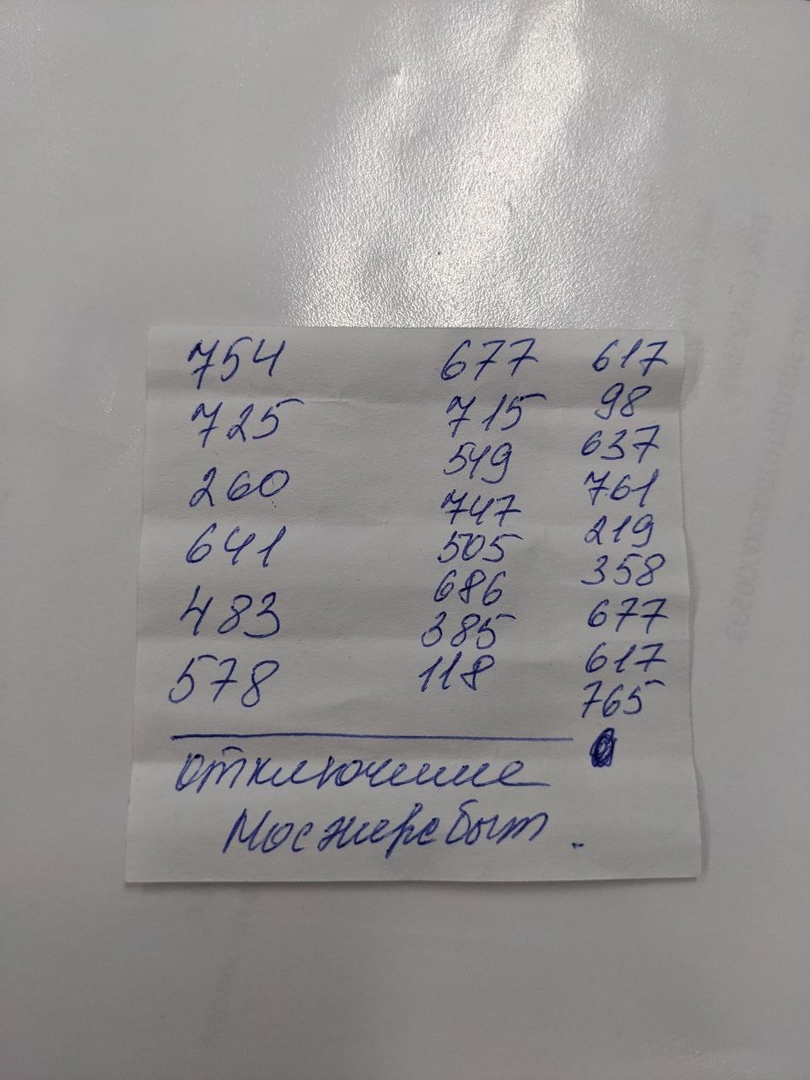 754
725
260
641
483
578
677
715
519
747
505
686
385
118
617
98
637
761
219
358
677
617
765
отключение
Мосэнергосбыт.